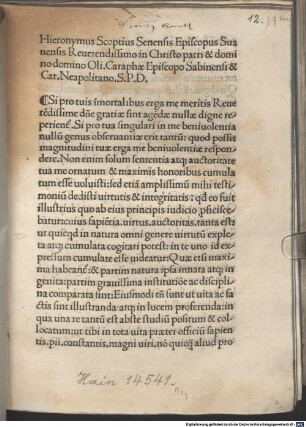 12.
Hieronymus Scoptius Senensis Episcopus Sua
nensis Reuerendissimo in Christo patri & domi
no domino Oli. Caraphæ Episcopo Sabinensi &
Car. Neapolitano. S.P.D.
¶Si pro tuis ímortalibus erga me meritis Reue
rēdissime dñe gratiæ sint agēdæ nullæ digne re
perient̃. Si pro tua singulari in me beniuolentia
nullū genus obseruantiæ erit tantū: quod possit
magnitudini tuæ erga me beniuolentiæ respon
dere. Non enim solum sententia atq̃ auctoritate
tua me ornatum & maximis honoribus cumula
tum esse uoluisti: sed etiā amplissimū mihi testi
moniū dedisti uirtutis & integritatis: qđ eo fuit
illustrius quo ab eius principis iudicio ꝓficisce
batur cuius sapiētia. uirtus. auctoritas. tanta est:
ut quicqd in natura omni genere uirtutū exple
ta atq̃ cumulata cogitari potest: in te uno id ex
pressum cumulate esse uideatur. Quæ etsi maxi
ma habeant̃: & partim natura ipsa innata atq̃ in
genita: partim grauissima institutiōe ac discipli
na comparata sint: Eiusmodi tñ sunt ut uita ac fa
ctis sint illustranda: atq̃ in lucem proferenda: in
qua una re tantū est abs te studiū positum & col
locatum: ut tibi in tota uita præter officiū sapien
tis. pii. constantis. magni uiri. nō quicq̃ aliud pro
Hain 14541.